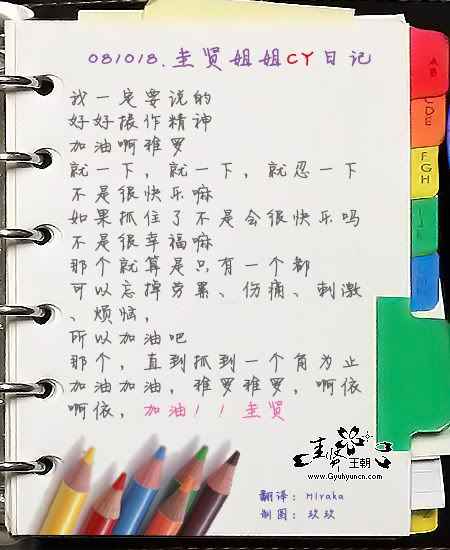 081018.圭贤姐姐CY日记
我一定要说的
好好操作精神
加油啊雅罗
就一下，就一下，就忍一下
不是很快乐嘛
如果抓住了不是会很快乐吗
不是很幸福嘛
那个就算是只有一个都
可以忘掉劳累、伤痛、刺激
、烦恼，
所以加油吧
那个，直到抓到一个角为止
加油加油，雅罗雅罗，啊依
啊依，加油！！圭贤
圭贤王朝
www.Gyuhyuncn.com
翻译：MIraka
制图：玖玖
AB
CDE
FGH